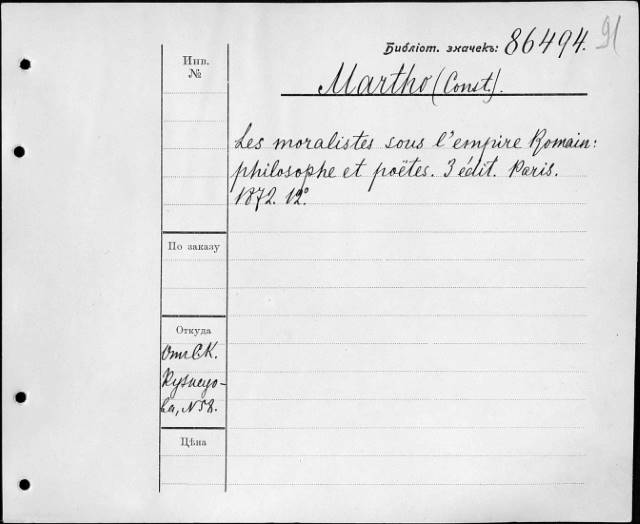 Библіот. значекъ: 86494. 91
Инв. №
Martho (Const.).
Les moralistes sous l'empire Romain:
philosophe et poëtes. 3 édit. Paris.
1872. 12°.
По заказу
Откуда
Отъ С.К.
Кузнецо-
ва, N 58.
Цѣна